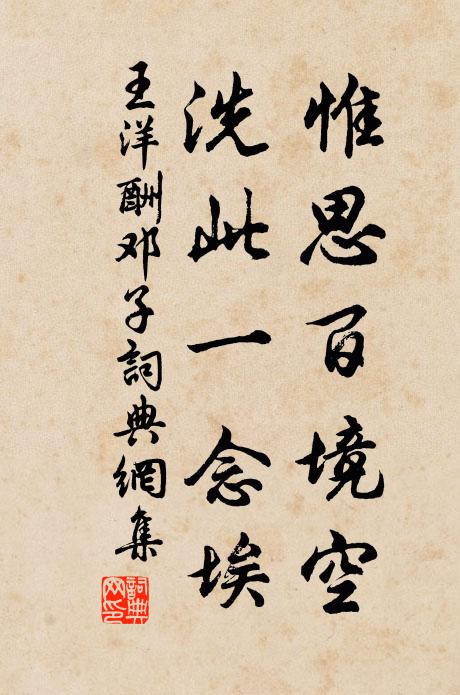 惟思百境空
洗此一念埃
王洋酬邓子詞典網集
詞典網印